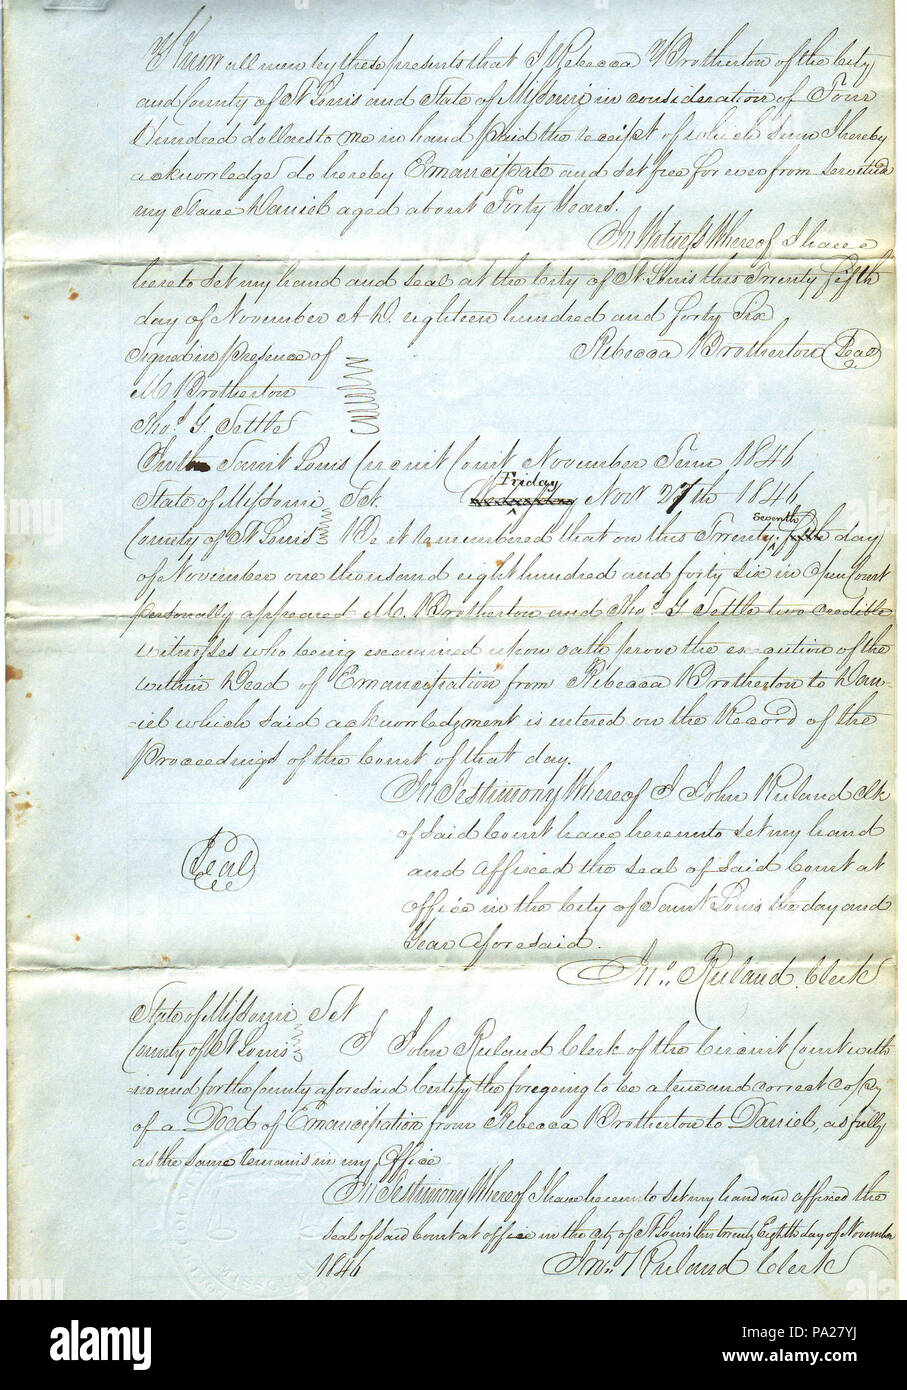 Know all men by these presents that I Rebecca Brotherton of the City
and County of St Louis and State of Missouri in consideration of Four
Hundred dollars to me in hand paid the receipt of which sum I hereby
acknowledge do hereby Emancipate and set free for ever from servitude
my Slave Daniel aged about Forty Years.
In Witness Whereof I have
hereto set my hand and seal at the City of St Louis this Twenty fifth
day of November A.D. eighteen hundred and forty Six
Signed in presence of Rebecca Brotherton Seal
M. Brotherton
Thos. G. Settle
In the Saint Louis Circuit Court November Term 1846
Friday
State of Missouri Sct. Novr 27th 1846
seventh
County of St Louis Be it Remembered that on this Twenty fifth day
of November one thousand eight hundred and forty six in open Court
personally appeared M. Brotherton and Thos. G Settle two credible
witnesses who being examined upon oath prove the execution of the
within Deed of Emancipation from Rebecca Brotherton to Dan-
-iel which said acknowledgment is entered on the Record of the
Proceedings of the Court of that day.
In Testimony Whereof I John Ruland Clk
of said Court have hereunto set my hand
Seal
and affixed the seal of said Court at
office in the City of Saint Louis the day and
Year aforesaid.
Jno. Ruland Clerk
State of Missouri Sct
County of St Louis I John Ruland Clerk of the Circuit Court with
-in and for the County aforesaid Certify the foregoing to be a true and correct copy
of a Deed of Emancipation from Rebecca Brotherton to Daniel, as fully
as the same remains in my Office
In Testimony Whereof I have hereunto set my hand and affixed the
seal of said Court at office in the City of St Louis this twenty Eighth day of November
1846 Jno. Ruland Clerk
alamy
Image ID: PA27YJ
www.alamy.com